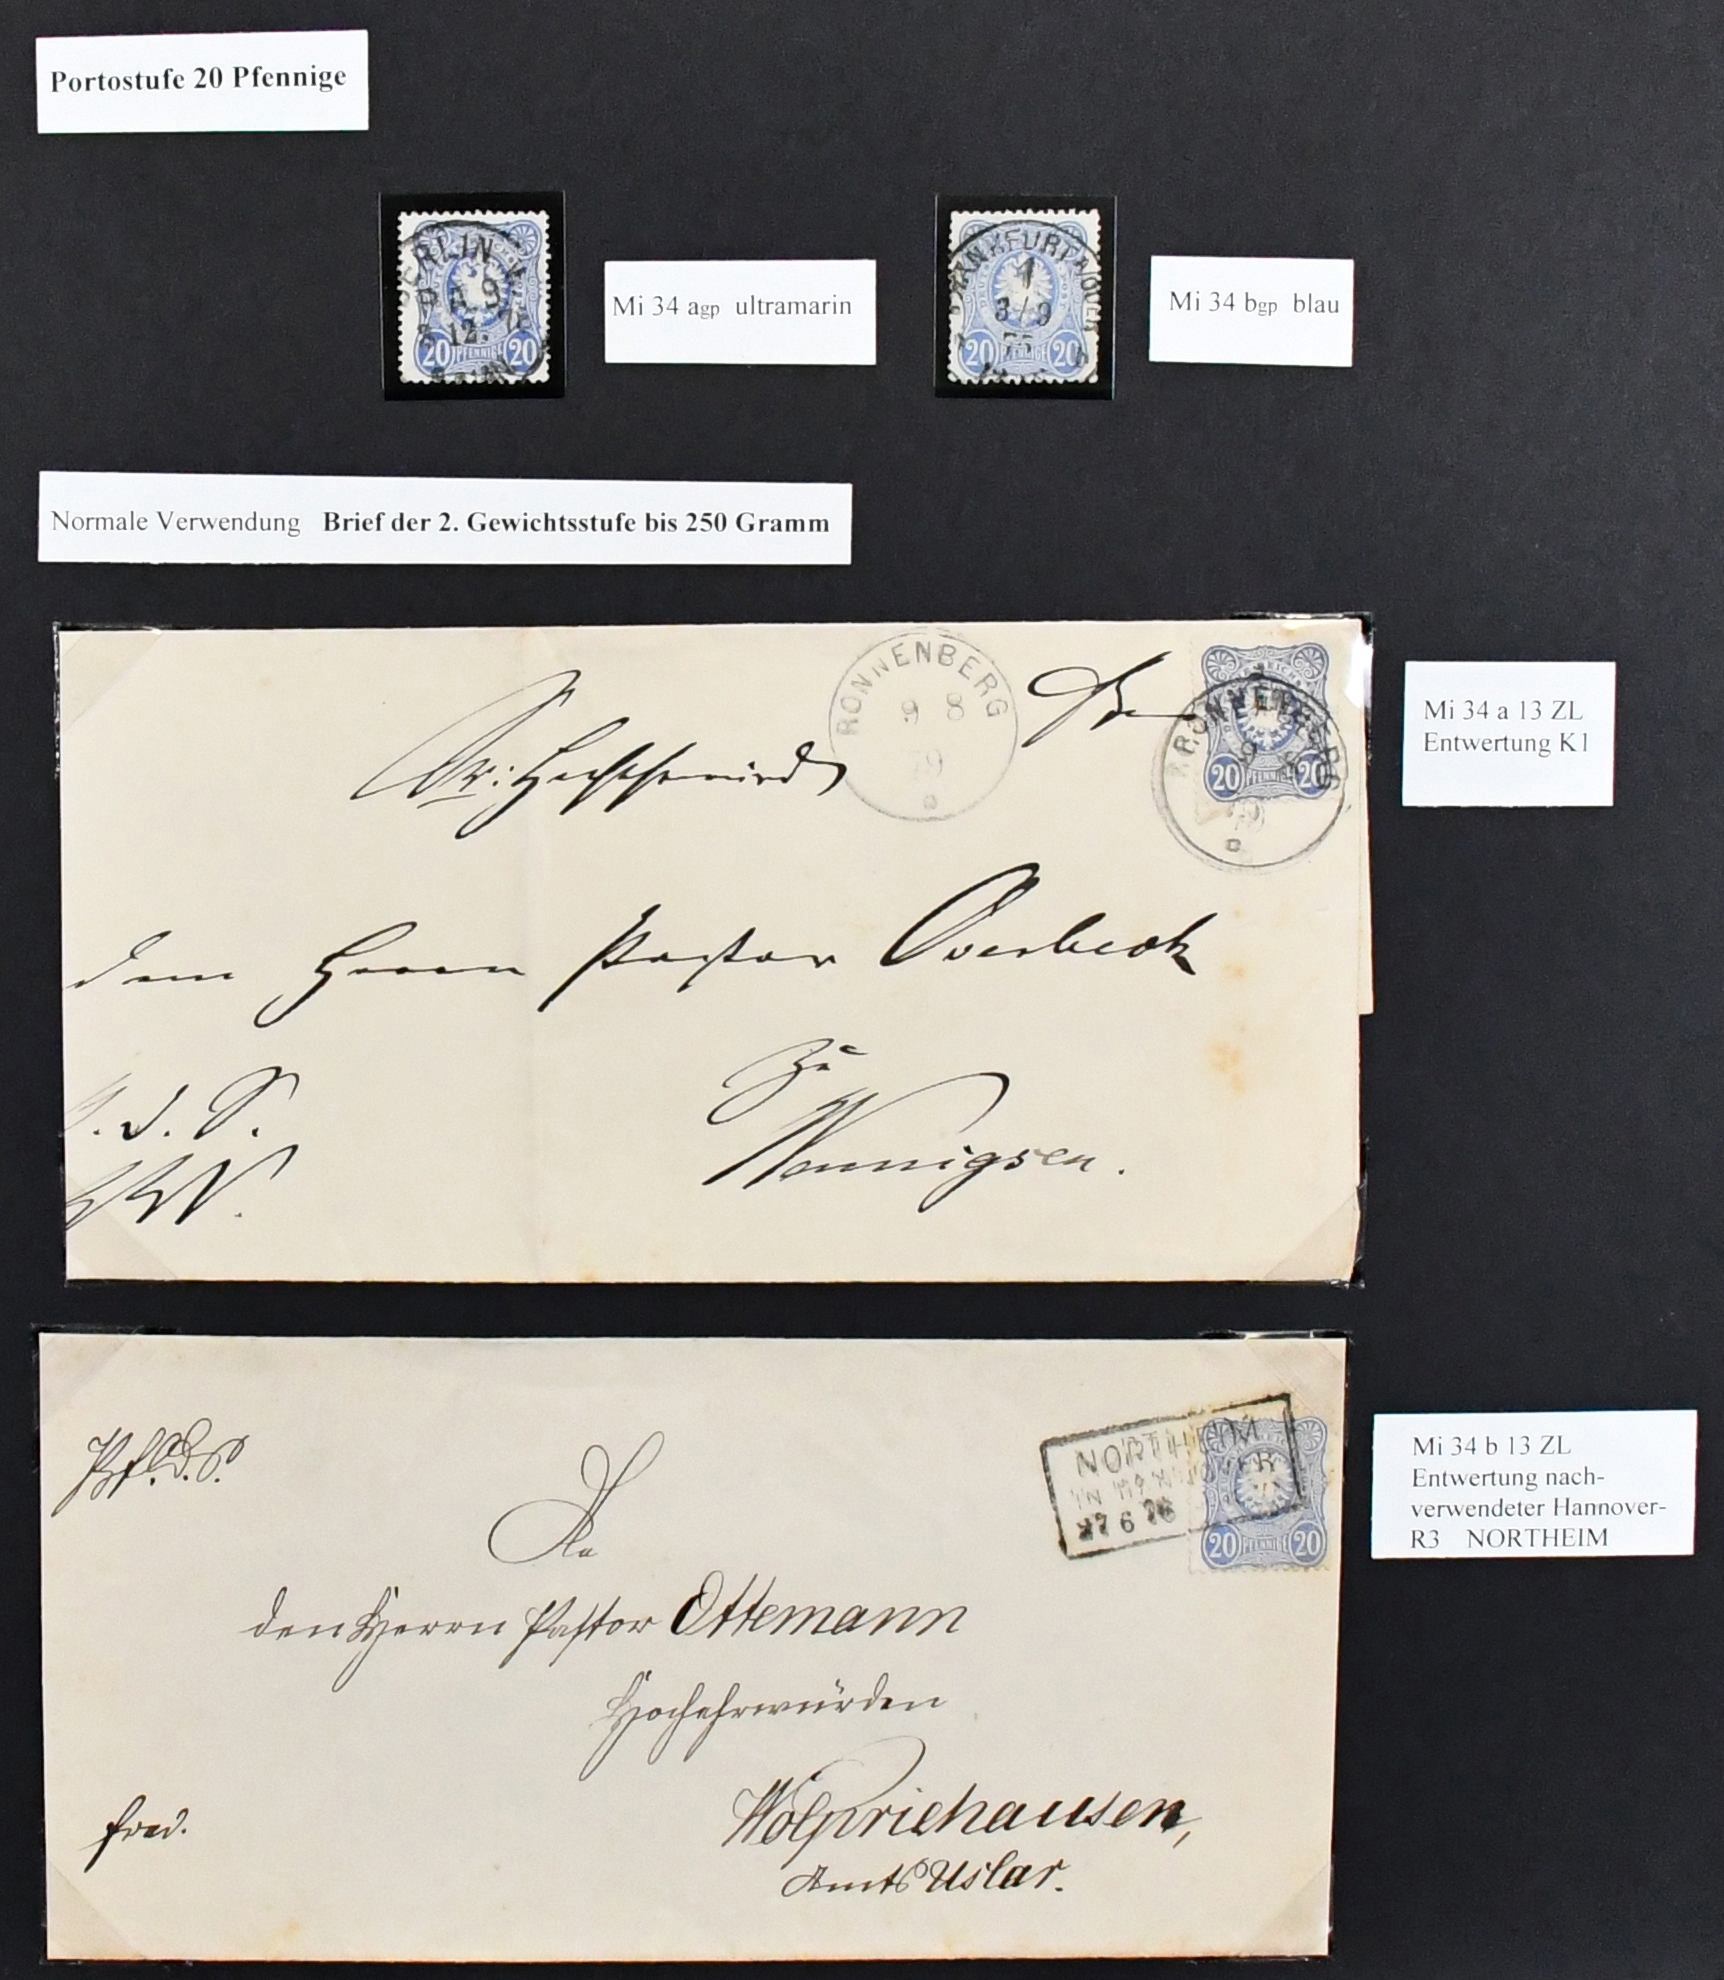 Portostufe 20 Pfennige
BERLIN W
P.A. 9
12.
20 PFENNIGE 20
Mi 34 agp ultramarin
FRANKFURT A/ODER
1
3/9
20 PFENNIGE 20
Mi 34 bgp blau
Normale Verwendung Brief der 2. Gewichtsstufe bis 250 Gramm
RONNENBERG
9 8
79
RONNENBERG
9 8
20 PFENNIGE 20
Sr: Hochehrwürd
dem Herrn Pastor Overbeck
zu
Wennigsen.
Mi 34 a 13 ZL
Entwertung K1
NORTHEIM
IN HANNOVER
27 6 76
20 PFENNIGE 20
An
den Herrn Pastor Ottemann
Hochehrwürden
Wolpriehausen,
Amts Uslar.
Mi 34 b 13 ZL
Entwertung nach-
verwendeter Hannover-
R3 NORTHEIM